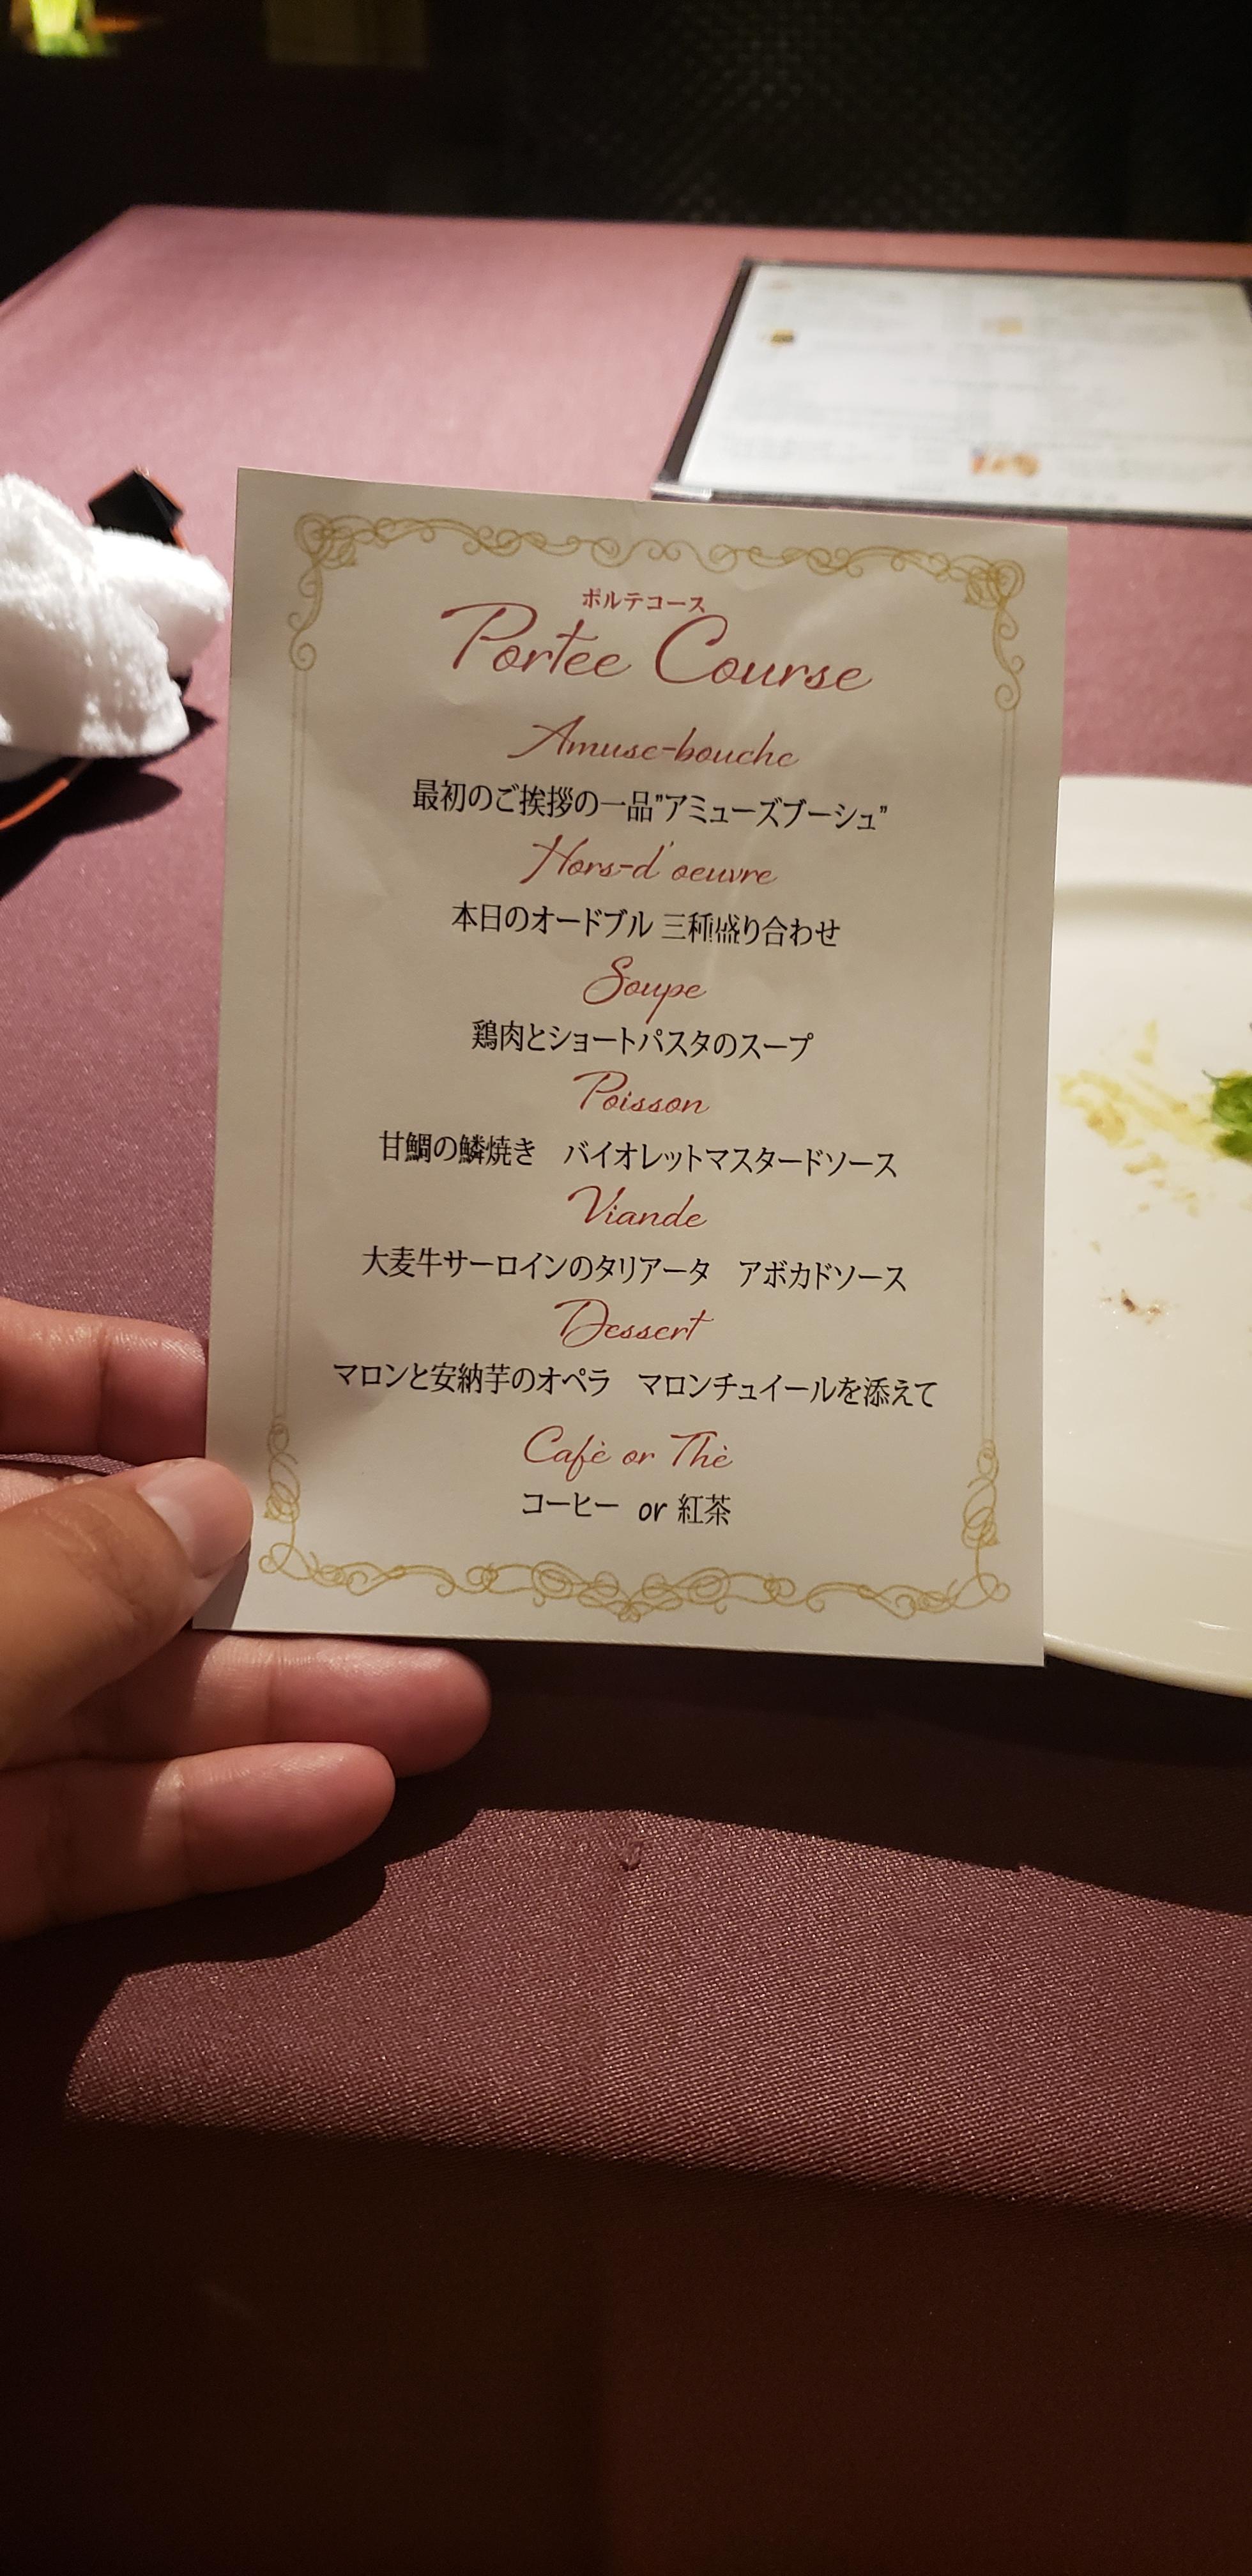 ポルテコース
Portee Course
Amuse-bouche
最初のご挨拶の一品"アミューズブーシュ"
Hors-d'oeuvre
本日のオードブル 三種盛り合わせ
Soupe
鶏肉とショートパスタのスープ
Poisson
甘鯛の鱗焼き　バイオレットマスタードソース
Viande
大麦牛サーロインのタリアータ　アボカドソース
Dessert
マロンと安納芋のオペラ　マロンチュイールを添えて
Cafè or Thè
コーヒー or 紅茶